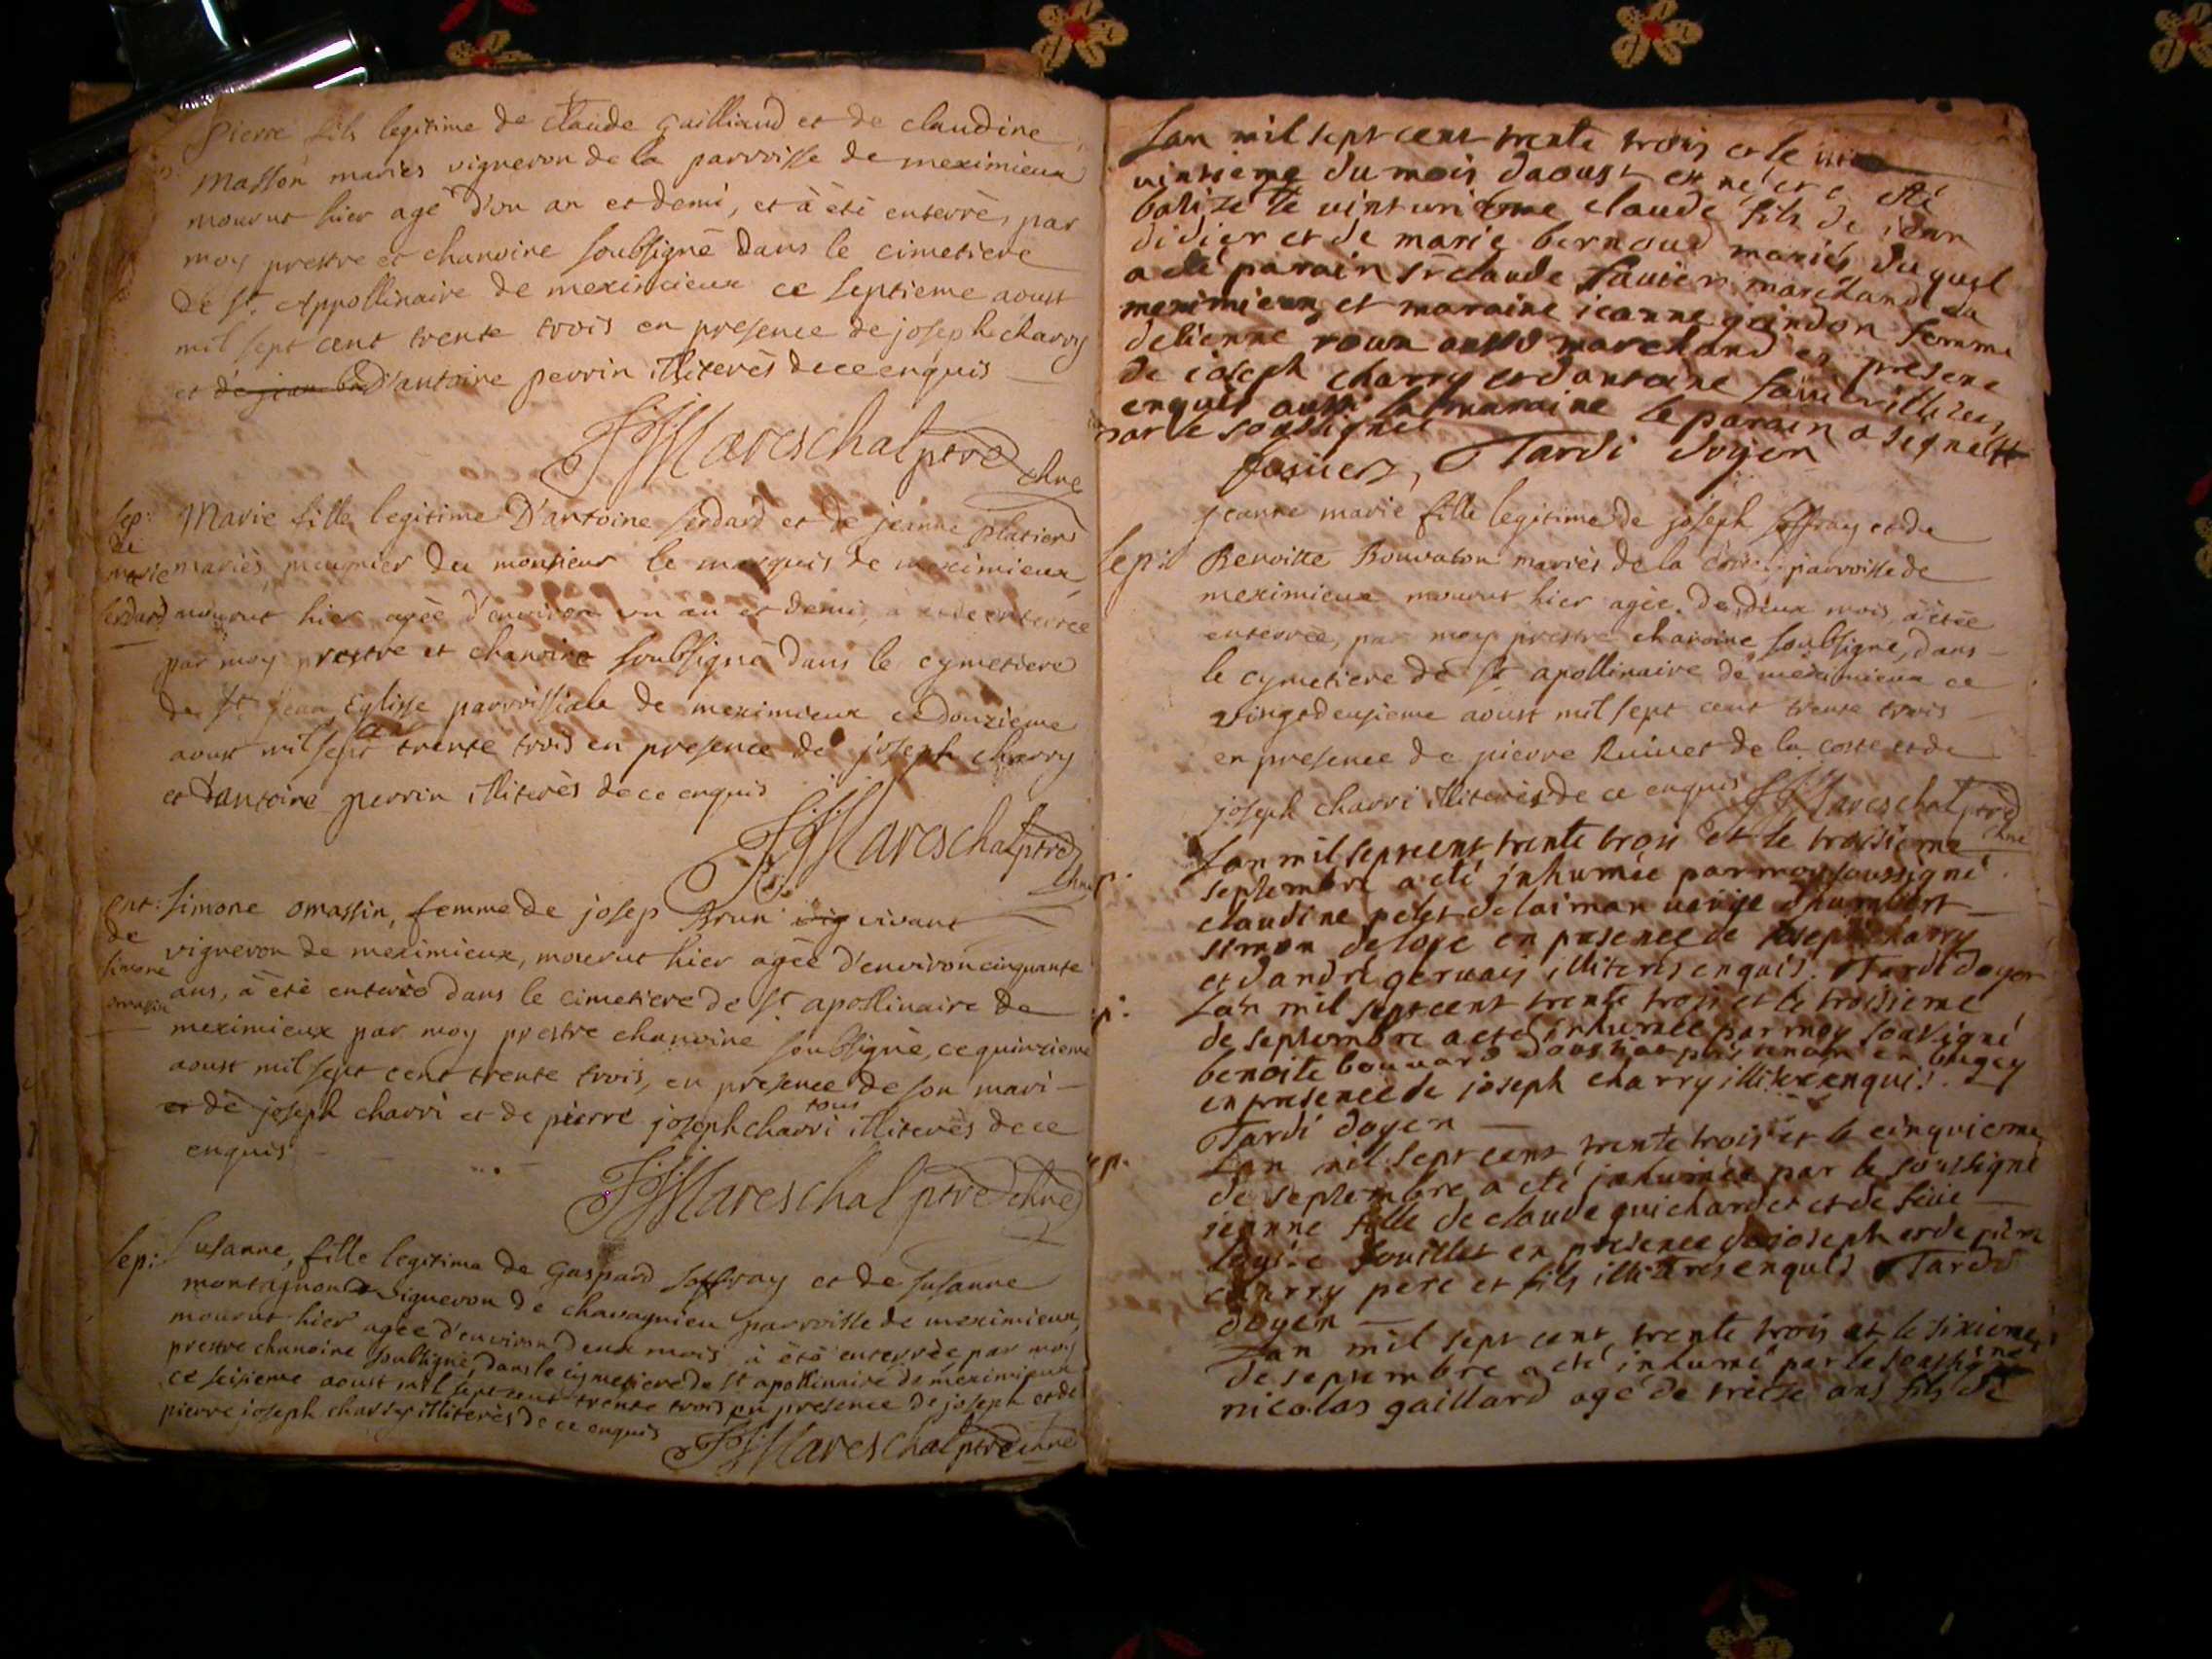 Pierre fils legitime de Claude Gailliaud et de claudine
Masson mariés vigneron de la parroisse de meximieux
mourut hier agé d'un an et demi, et à été enterré, par
moy prestre et chanoine soubsigné dans le cimetiere
de St. Appollinaire de meximieux ce septieme aoust
mil sept cent trente trois en presence de joseph charry
et de jean d'antoine perrin illiterés de ce enquis
Mareschal ptre chne
Sep:
de
marie
serdard
Marie fille legitime D'antoine serdard et de jeanne platier
mariés, meunier du monsieur le marquis de meximieux
mourut hier agée d'environ un an et demi, a enterrée
par moy prestre et chanoine soubsigné dans le cymetiere
de St jean Eglisse parroissiale de meximieux ce douzieme
aoust mil sept trente trois en presence de joseph charry
et d'antoine perrin illiterés de ce enquis
Mareschal ptre chne
ent:
de
simone
omassin
Simone omassin, femme de josep Brun vivant
vigneron de meximieux, mourut hier agée d'environ cinquante
ans, à été enterré dans le cimetiere de St. apollinaire de
meximieux par moy prestre chanoine soubsigné, ce quinzieme
aoust mil sept cent trente trois, en presence de son mari
et de joseph charri et de pierre joseph charri tous illiterés de ce
enquis
Mareschal ptre chne
Sep:
Susanne, fille legitime de Gaspard soffray et de susanne
montagnon vigneron de chavagnieu parroisse de meximieux,
mourut hier agée d'environ deux mois à été enterrée par moy
prestre chanoine soubsigné, dans le cymetiere de St apollinaire de meximieux
ce seisieme aoust mil sept cent trente trois en presence de joseph et de
pierre joseph charry illiterés de ce enquis
Mareschal ptre chne
Lan mil sept cent trente trois et le
vintieme du mois daoust est né et a été
batizé le vint claude fils de jean
didier et de marie bernoud mariés duquel
a été parain sr claude favier marchand du
meximieux et maraine jeanne grindon femme
detienne roux aussi marchand en presene
de joseph charry et dantoine
enquis aussi la maraine le parain a signé
par le soussigné
Tardi doyen
jeanne marie fille legitime de joseph soffray et de
Sep:
Benoitte Bouvaton mariés de la parroisse de
meximieux mourut hier agée de deux mois, à étée
enterrée, par moy prestre chanoine soubsigné, dans
le cymetiere de St apollinaire de meximieux ce
vingtdeusieme aoust mil sept cent trente trois
en presence de pierre de la coste et de
joseph charri illiterés de ce enquis Mareschal ptre
chne
Lan mil septcent trente trois et le troisieme
septembre a eté inhumée par moy soussigné
claudine dhumbert
simon en presence de joseph charry
et dandré gervais illiteres enquis. Tardi doyen
Lan mil septcent trente trois et le troisieme
de septembre a eté inhumée par moy soussigné
benoite bouvard en bugey
en presence de joseph charry illiteré enquis.
Tardi doyen
Lan mil sept cent trente trois et le cinquieme
de septembre a eté inhumée par le soussigné
jeanne fille de claude guichardet et de
en presence de joseph et de piere
charry pere et fils illiteres enquis Tardi
doyen
Lan mil sept cent trente trois et le sixieme
de septembre a eté inhumé par le soussigné
nicolas gaillard agé de treize ans fils de